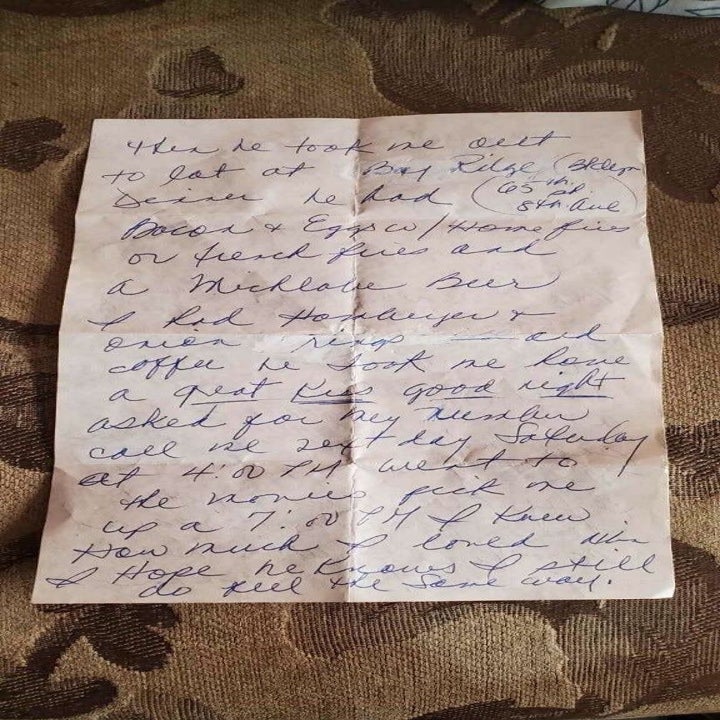 then he took me out
to eat at Bay Ridge (Bklyn
65 th. Rd.
8th. Ave)
Dinner he had
Bacon & Eggs w/ Home fries
or french fries and
a Michlobe Beer
I had Hamburger &
onion rings and
coffee he took me home
a great kiss good night
asked for my number
call me next day Saturday
at 4:00 PM went to
the movies pick me
up a 7:00 PM I knew
How much I loved him
I Hope he knows I still
do feel the same way.